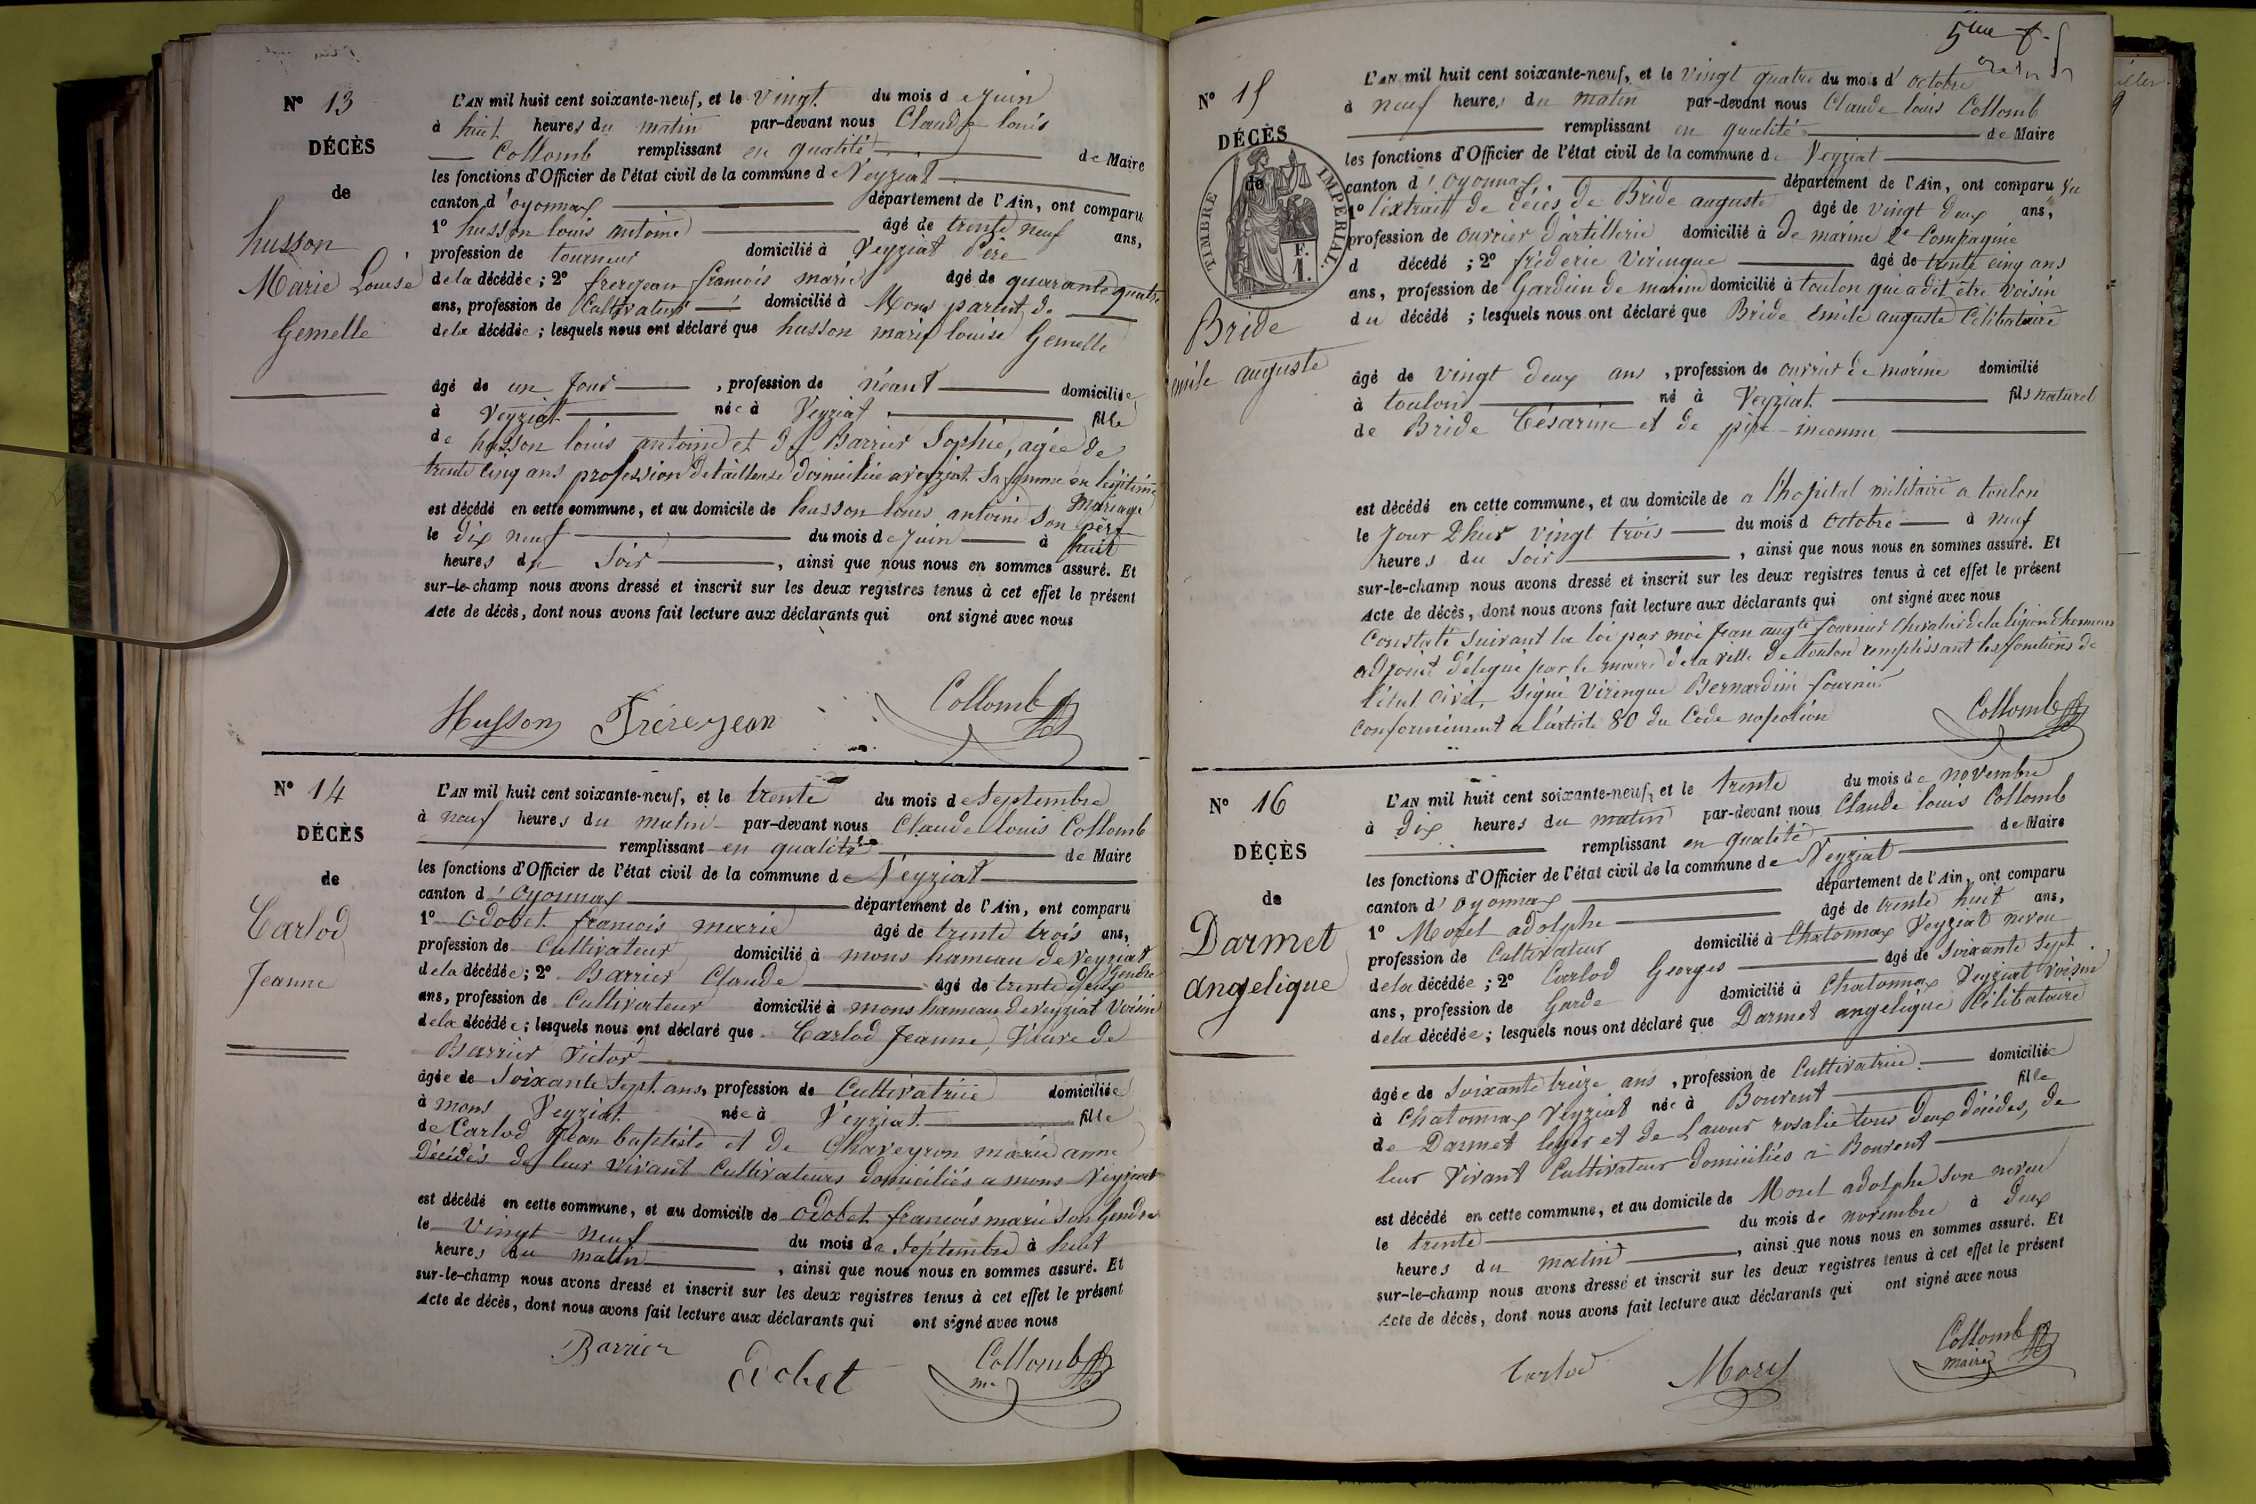 N° 13
DÉCÈS
de
husson
Marie Louise
Gemelle
L'AN mil huit cent soixante-neuf, et le vingt du mois de Juin
à huit heures du matin par-devant nous Claude louis
Collomb remplissant en qualité de Maire
les fonctions d'Officier de l'état civil de la commune de Veyziat
canton d'oyonnax département de l'Ain, ont comparu
1° husson louis antoine âgé de trente neuf ans,
profession de tourneur domicilié à Veyziat Père
de la décédée; 2° frerejean francois marie âgé de quarante quatre
ans, profession de Cultivateur domicilié à Mons parent de
de la décédée; lesquels nous ont déclaré que husson marie louise Gemelle
âgé de un Jour, profession de néant domiciliée
à Veyziat née à Veyziat fille
de husson louis antoine et de Barrier Sophie, agée de
trente cinq ans profession de tailleuse domiciliée a veyziat Sa femme en légitime
Mariage
est décédé en cette commune, et au domicile de husson louis antoine son père
le dix neuf du mois de Juin à huit
heures du Soir, ainsi que nous nous en sommes assuré. Et
sur-le-champ nous avons dressé et inscrit sur les deux registres tenus à cet effet le présent
Acte de décès, dont nous avons fait lecture aux déclarants qui ont signé avec nous
Husson Frèrejean Collomb
N° 14
DÉCÈS
de
Carlod
Jeanne
L'AN mil huit cent soixante-neuf, et le trente du mois de Septembre
à neuf heures du matin par-devant nous Claude louis Collomb
remplissant en qualité de Maire
les fonctions d'Officier de l'état civil de la commune de Veyziat
canton d'Oyonnax département de l'Ain, ont comparu
1° Odobet francois marie âgé de trente trois ans,
profession de Cultivateur domicilié à mons hameau de Veyziat
Gendre
de la décédée; 2° Barrier Claude âgé de trente deux
ans, profession de Cultivateur domicilié à mons hameau de Veyziat Voisin
de la décédée; lesquels nous ont déclaré que Carlod Jeanne, Veuve de
Barrier Victor
âgée de Soixante Sept ans, profession de Cultivatrice domiciliée
à mons Veyziat née à Veyziat fille
de Carlod Jean baptiste et de Chaveyron marie anne
Décédés de leur Vivant Cultivateurs domiciliés a mons Veyziat
est décédé en cette commune, et au domicile de Odobet francois marie son Gendre
le Vingt neuf du mois de Septembre à huit
heures du matin, ainsi que nous nous en sommes assuré. Et
sur-le-champ nous avons dressé et inscrit sur les deux registres tenus à cet effet le présent
Acte de décès, dont nous avons fait lecture aux déclarants qui ont signé avec nous
Barrier Odobet Collomb
me
5me f.
N° 15
DÉCÈS
de
TIMBRE IMPÉRIAL
Bride
emile auguste
L'AN mil huit cent soixante-neuf, et le vingt quatre du mois d'octobre
à neuf heures du matin par-devant nous Claude louis Collomb
remplissant en qualité de Maire
les fonctions d'Officier de l'état civil de la commune de Veyziat
canton d'Oyonnax département de l'Ain, ont comparu vu
1° l'extrait de décès de Bride auguste âgé de vingt deux ans,
profession de ouvrier d'artillerie domicilié à de marine 2e Compagnie
d décédé; 2° fréderic Viringue âgé de trente cinq ans
ans, profession de Gardien de marine domicilié à toulon qui a dit être Voisin
du décédé; lesquels nous ont déclaré que Bride Emile auguste Célibataire
âgé de vingt deux ans, profession de ouvrier de marine domicilié
à toulon né à Veyziat fils naturel
de Bride Césarine et de père inconnu
est décédé en cette commune, et au domicile de a l'hopital militaire a toulon
le Jour D'hier vingt trois du mois d Octobre à neuf
heures du Soir, ainsi que nous nous en sommes assuré. Et
sur-le-champ nous avons dressé et inscrit sur les deux registres tenus à cet effet le présent
Acte de décès, dont nous avons fait lecture aux déclarants qui ont signé avec nous
Constaté Suivant la loi par moi Jean augte fournier Chevalier de la légion d'honneur
adjoint délégué par le maire de la Ville de toulon remplissant les fonctions de
l'état civil. Signé Viringue Bernardin fournier
Conformément a l'article 80 du Code napoléon Collomb
N° 16
DÉCÈS
de
Darmet
Angelique
L'AN mil huit cent soixante-neuf, et le trente du mois de novembre
à Dix heures du matin par-devant nous Claude louis Collomb
remplissant en qualité de Maire
les fonctions d'Officier de l'état civil de la commune de Veyziat
canton d'oyonnax département de l'Ain, ont comparu
1° Morel adolphe âgé de trente huit ans,
profession de Cultivateur domicilié à Chatonnax Veyziat neveu
de la décédée; 2° Carlod Georges âgé de Soixante Sept
ans, profession de Garde domicilié à Chatonnax Veyziat Voisin
de la décédée; lesquels nous ont déclaré que Darmet angelique Célibataire
âgée de Soixante treize ans, profession de Cultivatrice domiciliée
à Chatonnax Veyziat née à Bouvent fille
de Darmet leger et de Lacour rosalie tous deux décédés, de
leur Vivant Cultivateur domiciliés à Bouvent
est décédé en cette commune, et au domicile de Morel adolphe Son neveu
le trente du mois de novembre à deux
heures du matin, ainsi que nous nous en sommes assuré. Et
sur-le-champ nous avons dressé et inscrit sur les deux registres tenus à cet effet le présent
Acte de décès, dont nous avons fait lecture aux déclarants qui ont signé avec nous
Carlod Morel Collomb
maire